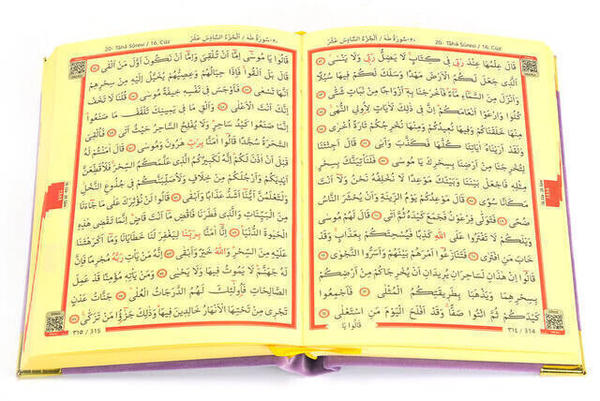 ٢٠- سُورَةُ طٰهٰ / اَلْجُزْءُ السَّادِسَ عَشَرَ
20- Tâhâ Sûresi / 16. Cüz
قَالَ عِلْمُهَا عِنْدَ رَبّ۪ي ف۪ي كِتَابٍ لَا يَضِلُّ رَبّ۪ي وَلَا يَنْسٰى
اَلَّذ۪ي جَعَلَ لَكُمُ الْاَرْضَ مَهْدًا وَسَلَكَ لَكُمْ ف۪يهَا سُبُلًا
وَاَنْزَلَ مِنَ السَّمَاءِ مَاءً فَاَخْرَجْنَا بِه۪ اَزْوَاجًا مِنْ نَبَاتٍ شَتّٰى
كُلُوا وَارْعَوْا اَنْعَامَكُمْ اِنَّ ف۪ي ذٰلِكَ لَاٰيَاتٍ لِاُولِي النُّهٰى
مِنْهَا خَلَقْنَاكُمْ وَف۪يهَا نُع۪يدُكُمْ وَمِنْهَا نُخْرِجُكُمْ تَارَةً اُخْرٰى
وَلَقَدْ اَرَيْنَاهُ اٰيَاتِنَا كُلَّهَا فَكَذَّبَ وَاَبٰى قَالَ اَجِئْتَنَا
لِتُخْرِجَنَا مِنْ اَرْضِنَا بِسِحْرِكَ يَا مُوسٰى فَلَنَأْتِيَنَّكَ بِسِحْرٍ
مِثْلِه۪ فَاجْعَلْ بَيْنَنَا وَبَيْنَكَ مَوْعِدًا لَا نُخْلِفُهُ نَحْنُ وَلَا اَنْتَ
مَكَانًا سُوًى قَالَ مَوْعِدُكُمْ يَوْمُ الزّ۪ينَةِ وَاَنْ يُحْشَرَ النَّاسُ
ضُحًى فَتَوَلّٰى فِرْعَوْنُ فَجَمَعَ كَيْدَهُ ثُمَّ اَتٰى قَالَ لَهُمْ مُوسٰى
وَيْلَكُمْ لَا تَفْتَرُوا عَلَى اللّٰهِ كَذِبًا فَيُسْحِتَكُمْ بِعَذَابٍ وَقَدْ
خَابَ مَنِ افْتَرٰى فَتَنَازَعُوا اَمْرَهُمْ بَيْنَهُمْ وَاَسَرُّوا النَّجْوٰى
قَالُوا اِنْ هٰذَانِ لَسَاحِرَانِ يُر۪يدَانِ اَنْ يُخْرِجَاكُمْ مِنْ اَرْضِكُمْ
بِسِحْرِهِمَا وَيَذْهَبَا بِطَر۪يقَتِكُمُ الْمُثْلٰى فَاَجْمِعُوا
كَيْدَكُمْ ثُمَّ ائْتُوا صَفًّا وَقَدْ اَفْلَحَ الْيَوْمَ مَنِ اسْتَعْلٰى
قَالُوا يَا
٣١٤ / 314
٢٠- سُورَةُ طٰهٰ / اَلْجُزْءُ السَّادِسَ عَشَرَ
20- Tâhâ Sûresi / 16. Cüz
قَالُوا يَا مُوسٰى اِمَّا اَنْ تُلْقِيَ وَاِمَّا اَنْ نَكُونَ اَوَّلَ مَنْ اَلْقٰى
قَالَ بَلْ اَلْقُوا فَاِذَا حِبَالُهُمْ وَعِصِيُّهُمْ يُخَيَّلُ اِلَيْهِ مِنْ سِحْرِهِمْ
اَنَّهَا تَسْعٰى فَاَوْجَسَ ف۪ي نَفْسِه۪ خ۪يفَةً مُوسٰى قُلْنَا لَا تَخَفْ
اِنَّكَ اَنْتَ الْاَعْلٰى وَاَلْقِ مَا ف۪ي يَم۪ينِكَ تَلْقَفْ مَا صَنَعُوا
اِنَّمَا صَنَعُوا كَيْدُ سَاحِرٍ وَلَا يُفْلِحُ السَّاحِرُ حَيْثُ اَتٰى فَاُلْقِيَ
السَّحَرَةُ سُجَّدًا قَالُوا اٰمَنَّا بِرَبِّ هٰرُونَ وَمُوسٰى قَالَ اٰمَنْتُمْ لَهُ
قَبْلَ اَنْ اٰذَنَ لَكُمْ اِنَّهُ لَكَب۪يرُكُمُ الَّذ۪ي عَلَّمَكُمُ السِّحْرَ فَلَاُقَطِّعَنَّ
اَيْدِيَكُمْ وَاَرْجُلَكُمْ مِنْ خِلَافٍ وَلَاُصَلِّبَنَّكُمْ ف۪ي جُذُوعِ النَّخْلِ
وَلَتَعْلَمُنَّ اَيُّنَا اَشَدُّ عَذَابًا وَاَبْقٰى قَالُوا لَنْ نُؤْثِرَكَ عَلٰى مَا جَاءَنَا
مِنَ الْبَيِّنَاتِ وَالَّذ۪ي فَطَرَنَا فَاقْضِ مَا اَنْتَ قَاضٍ اِنَّمَا تَقْض۪ي هٰذِهِ
الْحَيٰوةَ الدُّنْيَا اِنَّا اٰمَنَّا بِرَبِّنَا لِيَغْفِرَ لَنَا خَطَايَانَا وَمَا اَكْرَهْتَنَا
عَلَيْهِ مِنَ السِّحْرِ وَاللّٰهُ خَيْرٌ وَاَبْقٰى اِنَّهُ مَنْ يَأْتِ رَبَّهُ مُجْرِمًا فَاِنَّ
لَهُ جَهَنَّمَ لَا يَمُوتُ ف۪يهَا وَلَا يَحْيٰى وَمَنْ يَأْتِه۪ مُؤْمِنًا قَدْ عَمِلَ
الصَّالِحَاتِ فَاُولٰئِكَ لَهُمُ الدَّرَجَاتُ الْعُلٰى جَنَّاتُ عَدْنٍ
تَجْر۪ي مِنْ تَحْتِهَا الْاَنْهَارُ خَالِد۪ينَ ف۪يهَا وَذٰلِكَ جَزٰٓؤُا مَنْ تَزَكّٰى
٣١٥ / 315